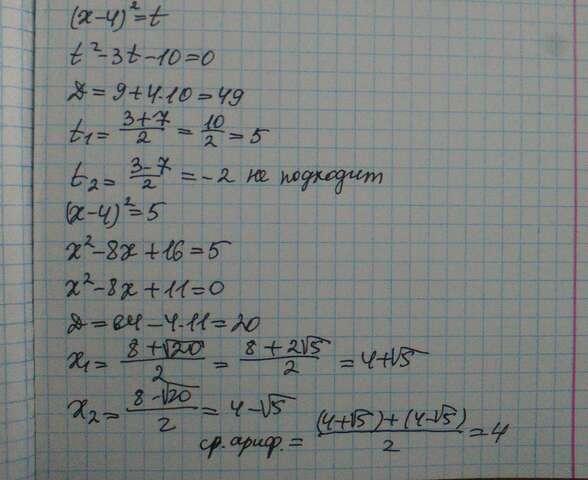 (x-4)²=t
t²-3t-10=0
D=9+4·10=49
t₁= (3+7)/2 = 10/2 = 5
t₂= (3-7)/2 = -2 не подходит
(x-4)²=5
x²-8x+16=5
x²-8x+11=0
D=64-4·11=20
x₁= (8+√20)/2 = (8+2√5)/2 = 4+√5
x₂= (8-√20)/2 = 4-√5
ср. ариф. = ((4+√5)+(4-√5))/2 = 4